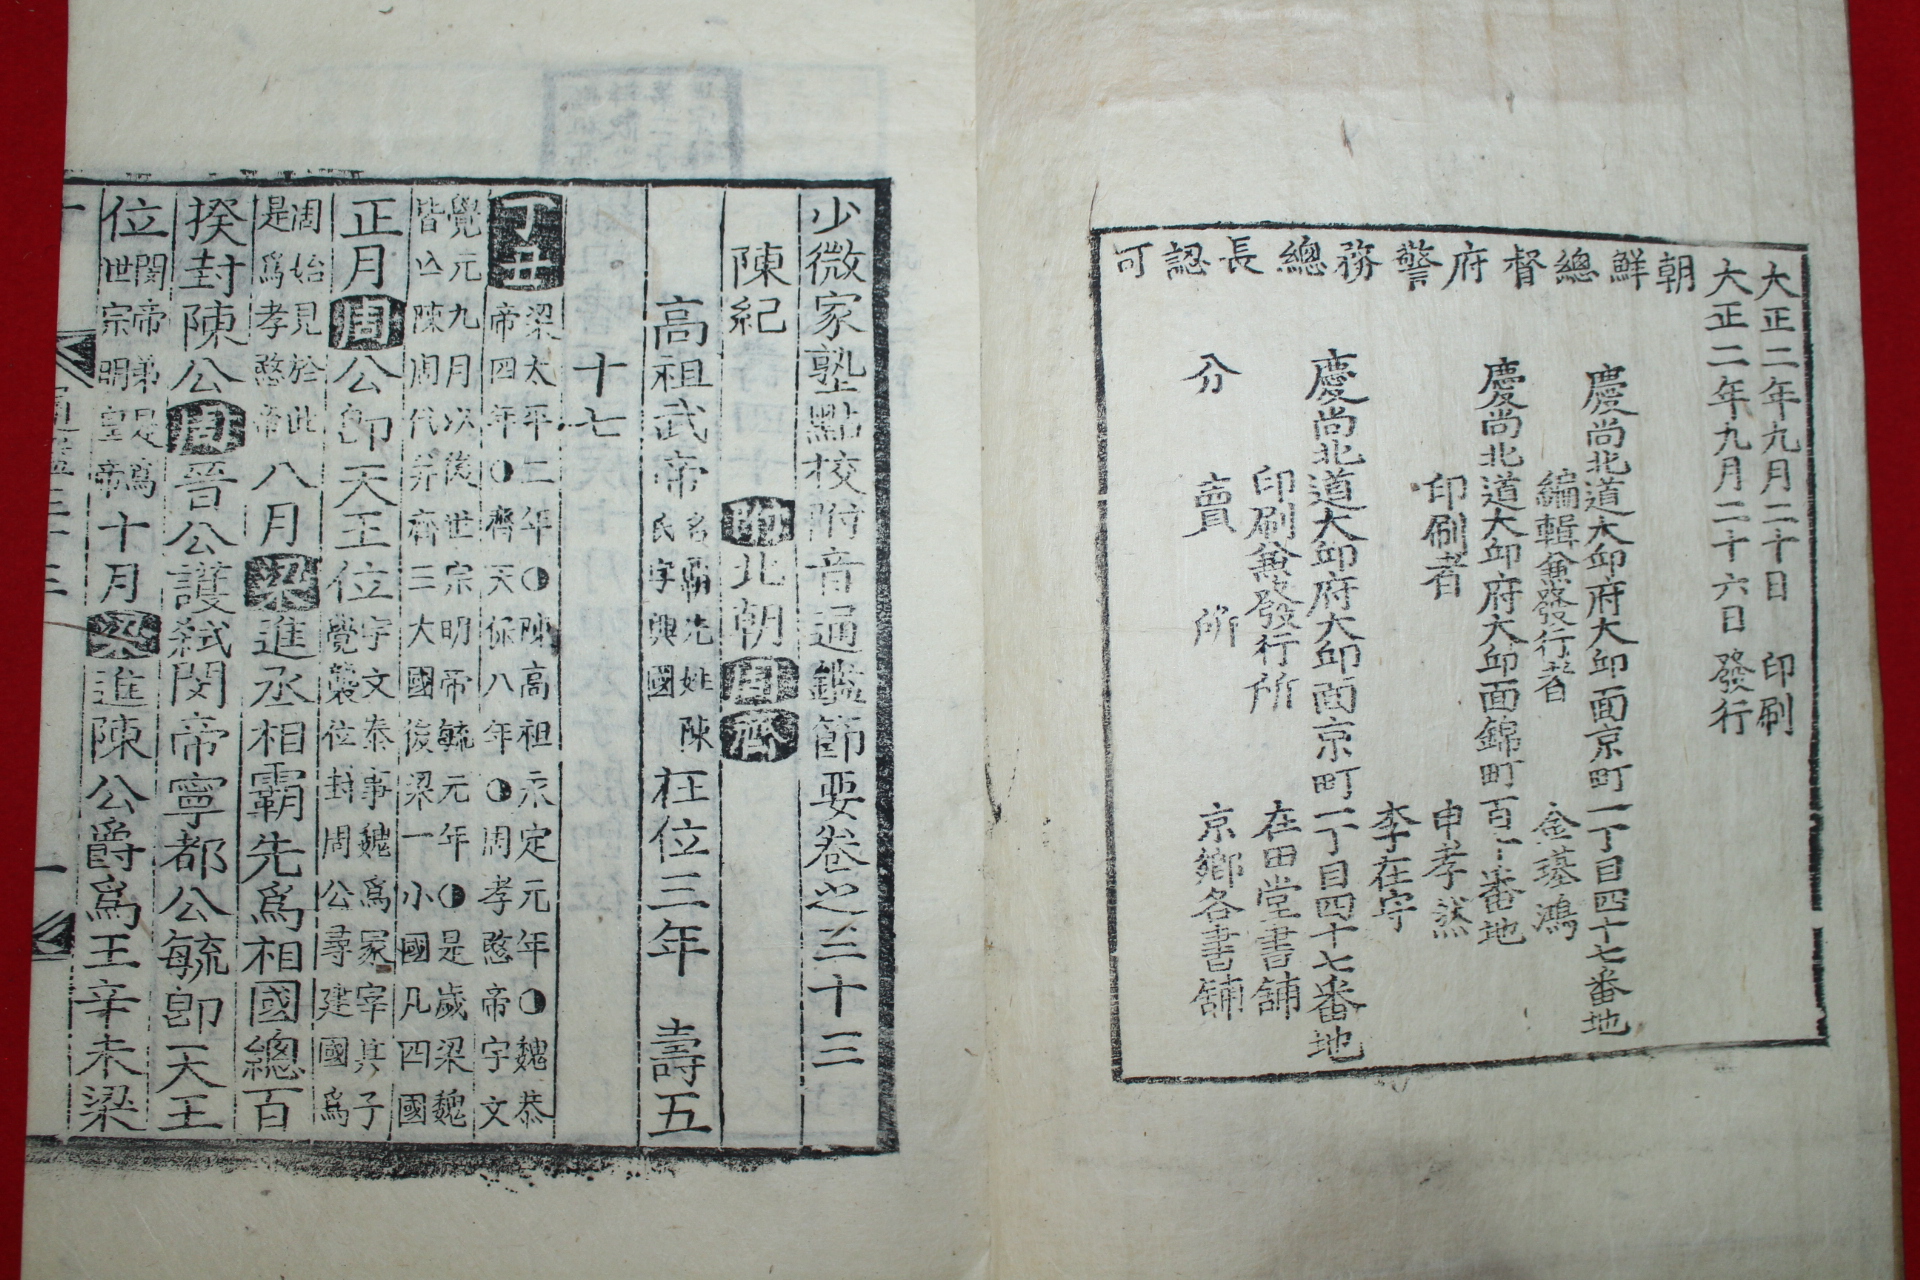 大正二年九月二十日 印刷
大正二年九月二十六日 發行
朝鮮總督府警務總長認可
慶尚北道大邱府大邱面京町一丁目四十七番地
編輯兼發行者 金璂鴻
慶尚北道大邱府大邱面錦町百十番地
印刷者 申孝燃
李在守
慶尚北道大邱府大邱面京町一丁目四十七番地
印刷兼發行所 在田堂書舖
分賣所 京鄉各書舖
少微家塾點校附音通鑑節要卷之三十三
陳紀 附北朝周齊
高祖武帝 名霸先姓陳氏字興國 在位三年 壽五
十七
丁丑 梁太平二年◑陳高祖永定元年◑魏恭
帝四年◑齊天保八年◑周孝愍帝宇文
覺元九月以後世宗明帝毓元年◑是歲梁魏
皆亡陳周代并齊三大國後梁一小國凡四國
正月周公卽天王位 宇文泰事魏爲冢宰其子
覺襲位封周公尋建國爲
周始見於此
是爲孝愍帝 八月梁進丞相霸先爲相國總百
揆封陳公周晉公護弑閔帝寧都公毓卽天王
位 閔帝弟是爲
世宗明皇帝 十月梁進陳公爵爲王辛未梁